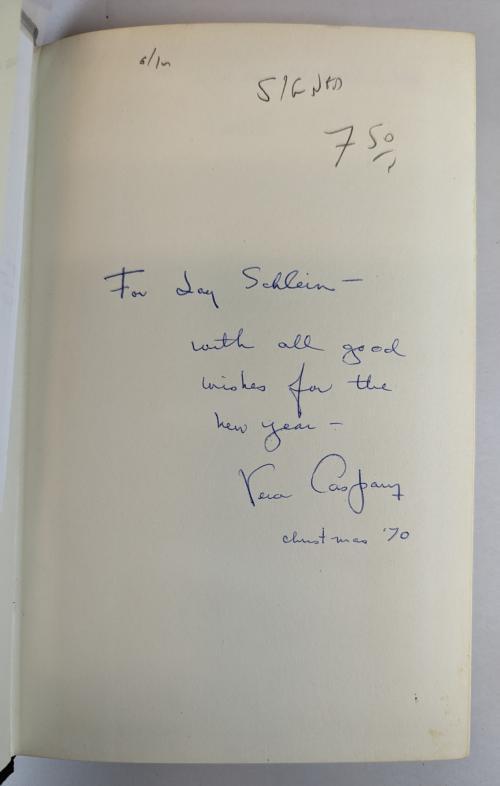 SIGNED
7 50
For Jay Schlein —
with all good
wishes for the
new year —
Vera Caspary
christmas '70